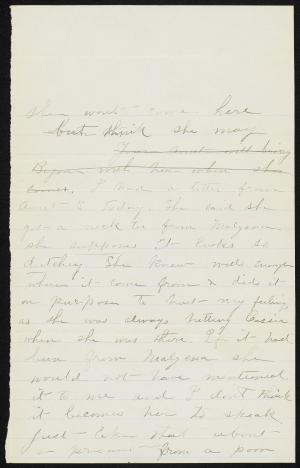 she wont come here
but think she may
Your Aunt will bring
with her when she
comes. I had a letter from
Aunt S today. She said she
got a neck tie from
she supposes it looks so
dutchey. She knew well enough
where it come from & did it
on purpose to hurt my feelings
as she was always hitting Cassie
when she was there. If it had
been from she
would not have mentioned
it to me and I dont think
it becomes her to speak
just like that about
a present from a poor